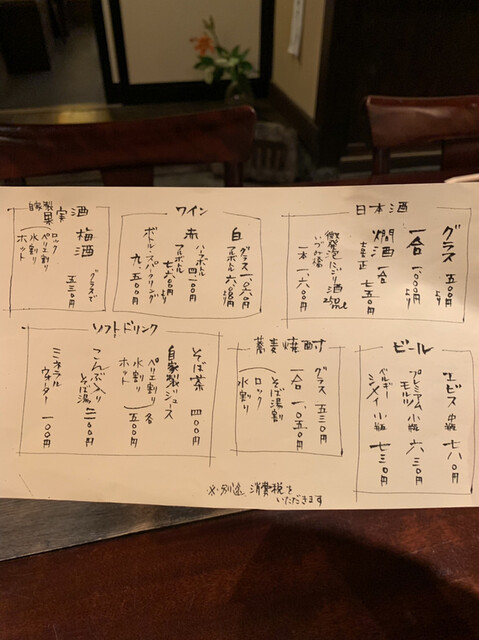 日本酒
グラス 五〇〇円より
一合 一、〇〇〇円より
燗酒 一合 七五〇円
喜正
微発泡にごり酒 250ml
いづみ橋
一本 一、六〇〇円
ワイン
白 グラス 一、〇六〇円
フルボトル 六、〇〇〇円より
赤 ハーフボトル 四、一〇〇円
フルボトル 七、六〇〇円より
ボトル・スパークリング
九、五〇〇円
自家製
果実酒
梅酒 グラスで
五三〇円
ロック
ペリエ割り
水割り
ホット
ビール
エビス 中瓶 七八〇円
プレミアム
モルツ 小瓶 六三〇円
ベルギー
シメイ 小瓶 七三〇円
蕎麦焼酎
グラス 五三〇円
一合 一、〇五〇円
そば湯割
ロック
水割り
ソフトドリンク
そば茶 四〇〇円
自家製ジュース
ペリエ割り
水割り 各
ホット 五〇〇円
こんぶ入り
そば湯 二〇〇円
ミネラル
ウォーター 一〇〇円
※別途 消費税を
いただきます